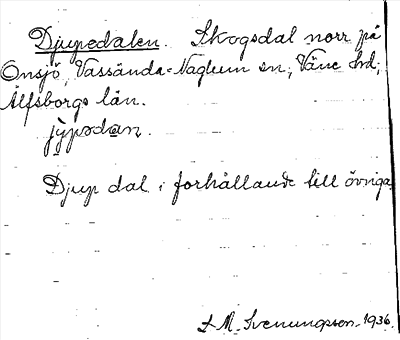 Djupedalen. Skogsdal norr på
Onsjö, Vassända-Naglum sn, Väne hd,
Älfsborgs län.
jy̱pədan.
Djup dal i förhållande till övriga.
S. M. Svenungsson 1936.